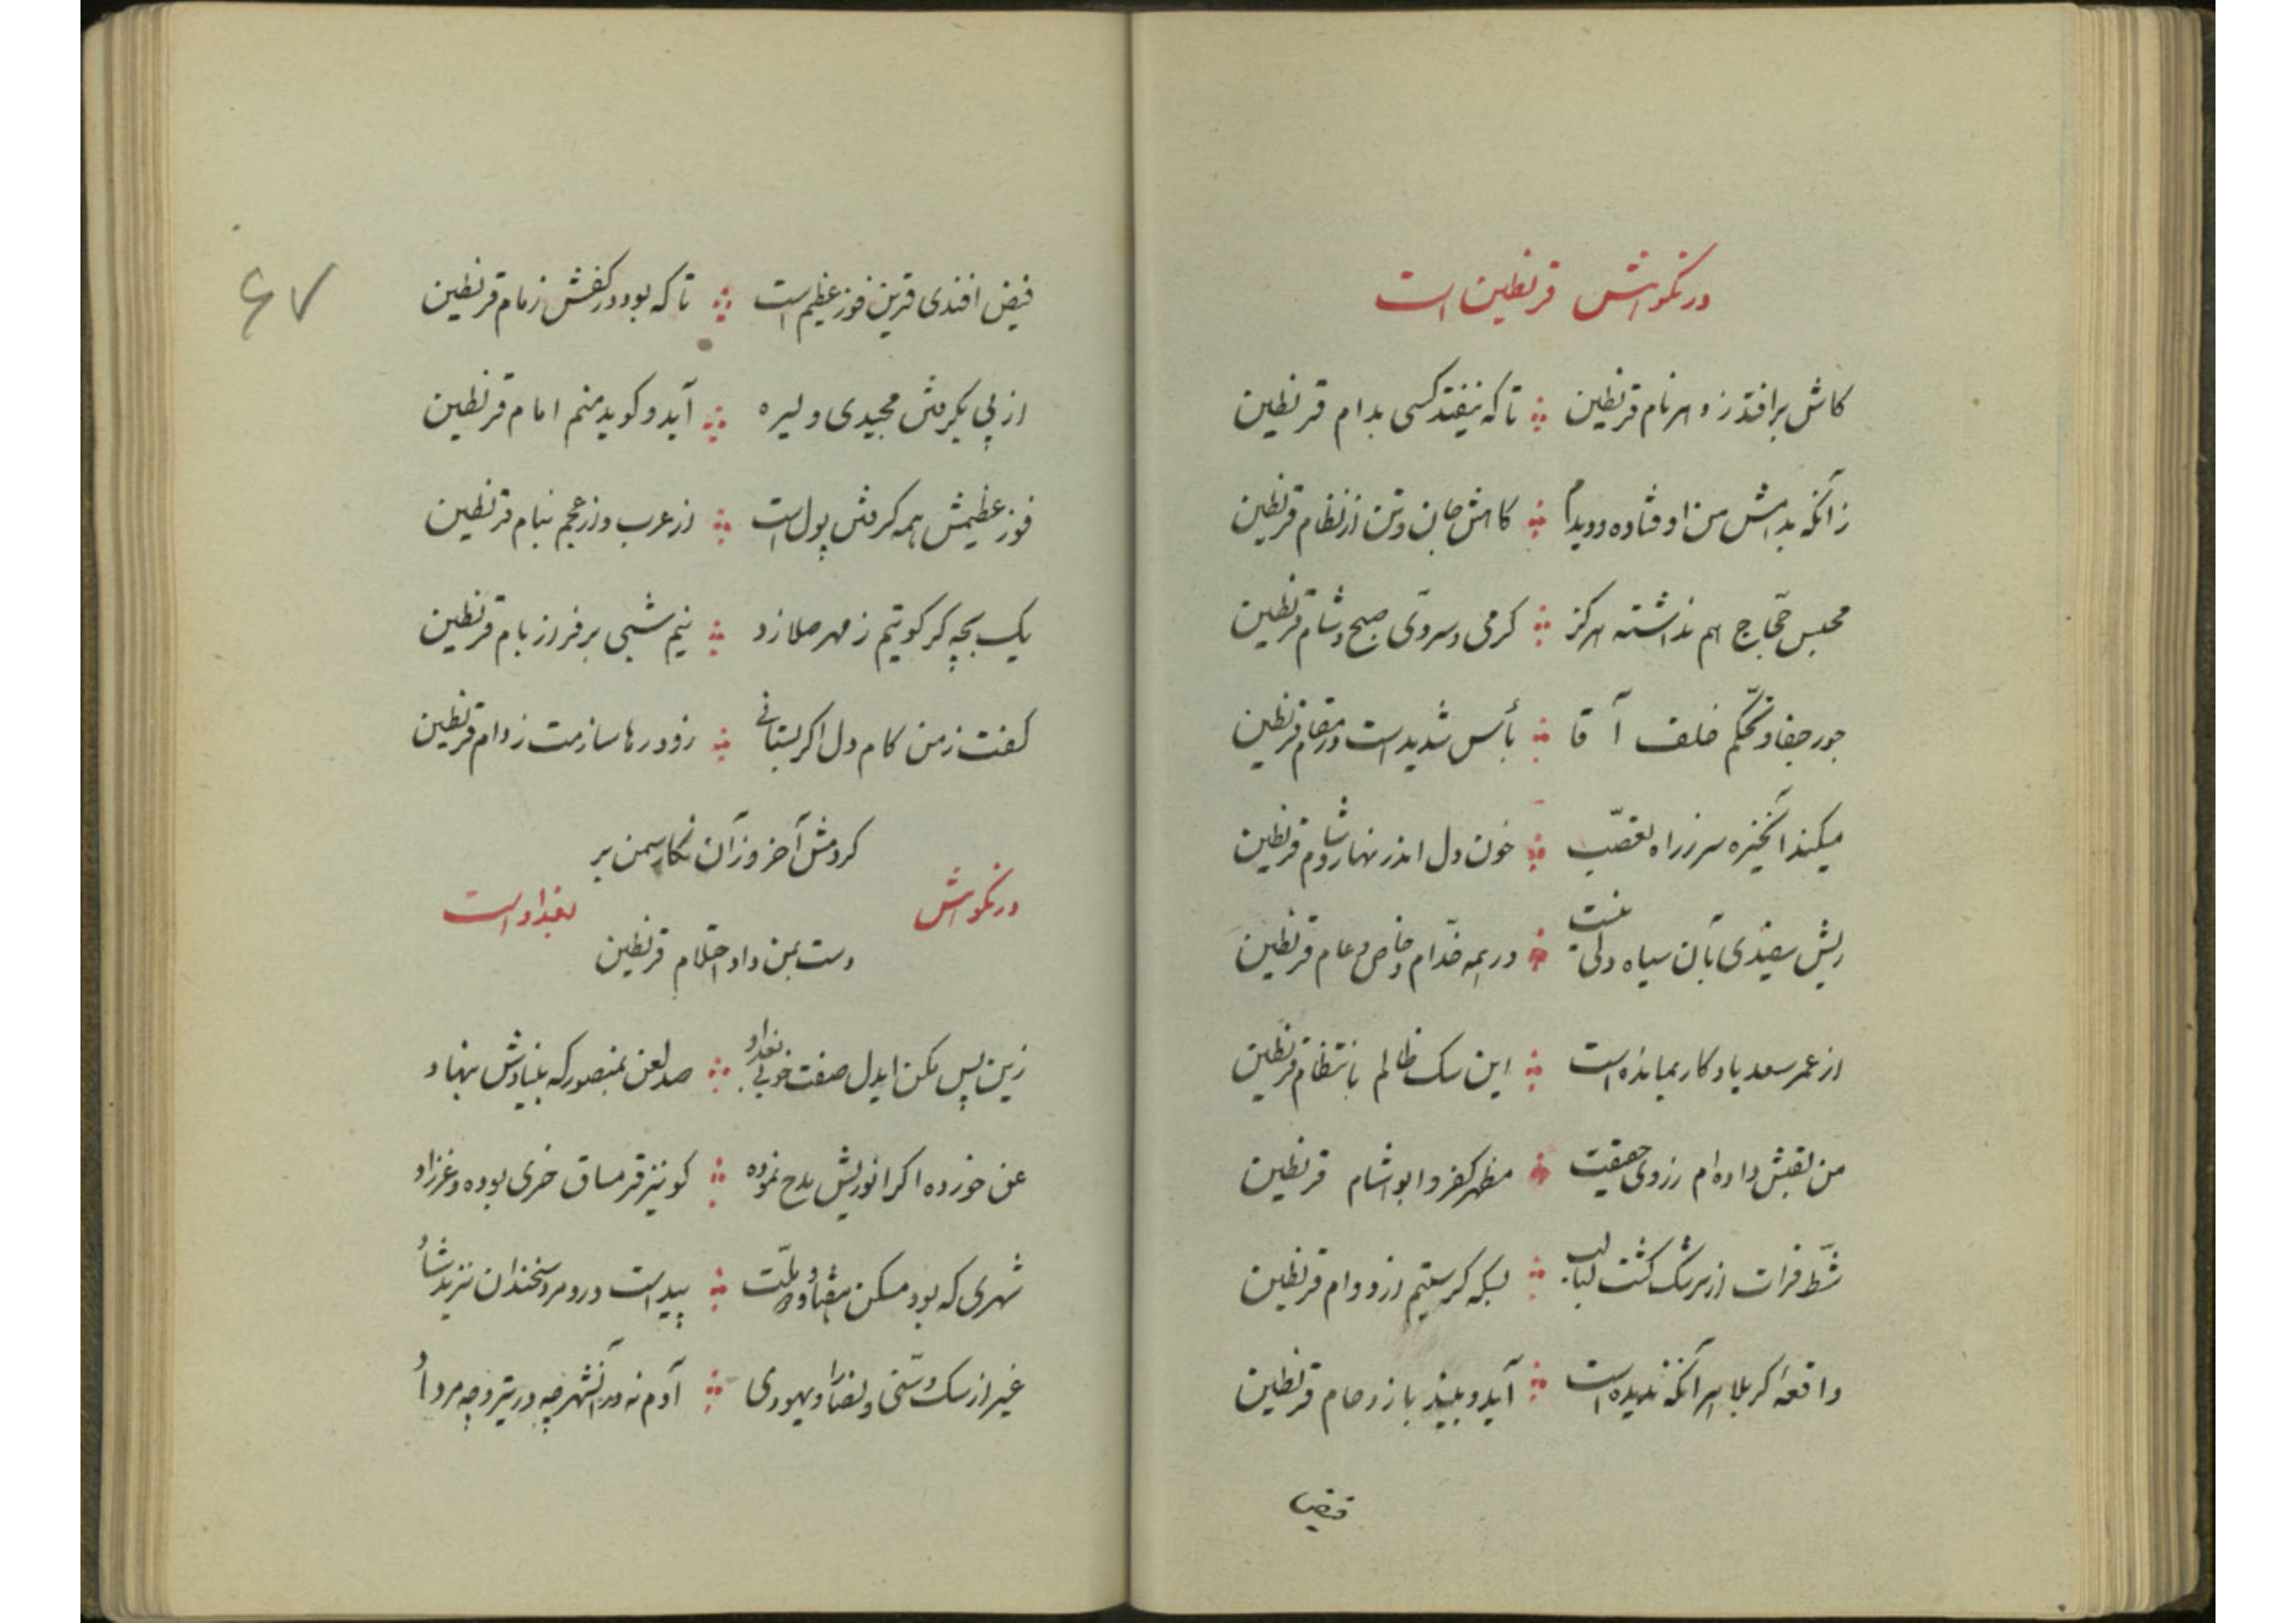 در نکوهش قرنطین است
کاش برافتد ز دهر نام قرنطین تا که نیفتد کسی بدام قرنطین
زآنکه بدامش من اوفتاده و دیدم کاهش جان و تن از نظام قرنطین
محبس حجّاج هم نداشته هرکز کرمی و سردی صبح و شام قرنطین
جور و جفا و تحکّم خلف آقا بأس شدید است در مقام قرنطین
میکند آنخیره سر ز راه تعصّب خون دل اندر نهار و شام قرنطین
ریش سفیدی بآن سیاه دلی نیست در همه خدّام و خاص و عام قرنطین
از عمر سعد یادکار بمانده است این سک ظالم بانتظام قرنطین
من لقبش داده‌ام ز روی حقیقت مظهر کفر و ابوالشام قرنطین
شطّ فرات از سرشک کشت لبالب بسکه کرستیم از دوام قرنطین
واقعهٔ کربلا هر آنکه ندیده است آید و بیند بازدحام قرنطین
فیض
فیض افندی قرین فوز عظیم است تا که بود در کفش زمام قرنطین
از پی یکرمش مجیدی و لیره آید و کوید منم امام قرنطین
فوز عظیمش همه کرفتن پول است از عرب و از عجم بنام قرنطین
یک بچه کرکویتم ز مهر صلا زد نیم شبی بر فراز بام قرنطین
کفت ز من کام دل اکر بستانی زود رها سازمت ز دام قرنطین
کردمش آخر وز آن نکار سمن بر
دست بمن داد احتلام قرنطین
در نکوهش بغداد است
زین پس مکن ایدل صفت خوبی بغداد صد لعن بمنصور که بنیادش بنهاد
عن خورده اکر انوریش مدح نموده کو نیز قرمساق خری بوده و غرزاد
شهری که بود مسکن هفتاد و دو ملّت پیداست درو مرد سخندان نزید شاد
غیر از سک و سنّی و نصارا و یهودی آدم نه در آنشهر چه در تیر و چه مرداد